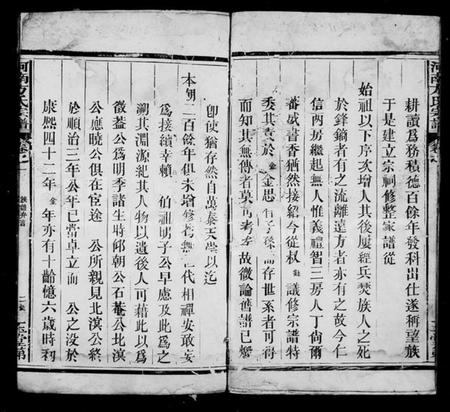 河南方氏宗譜
耕讀為務積德百餘年發科出仕遂稱望族
于是建立宗祠修整家譜從
始祖以下序次增入其後屢經兵燹族人之死
於鋒鏑者有之流離遠方者亦有之故今仁
信兩房繼起無人惟義禮智三房人丁尚爾
蕃盛書香猶然接紹今從 議修宗譜特
委其責於 金思 而存世系者可得
而知其無傳者莫可考 故微論舊譜已燬
即使猶存然自萬泰天 以迄
本朝二百餘年俱未增修 代相禪安敢妄
為接續幸賴 伯祖 子公早慮及此為之
溯其淵源紀其人物以遺後人可藉此以為之
徵蓋公為明季諸生時 朝公石菴公北溟
公應曉公俱在宦途 公所親見北溟公終
於順治三年公年已當卓立而 公之沒於
康熙四十二年 金年亦有十齡憶六歲時
河南方氏宗譜